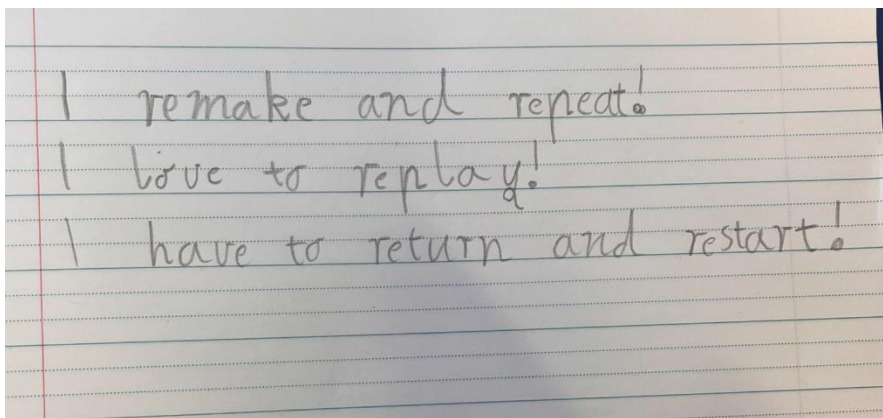 I remake and repeat!
I love to replay!
I have to return and restart!